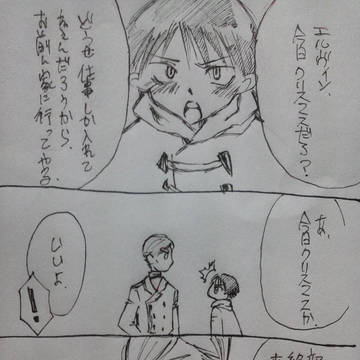 エルヴィン、
今日クリスマスだろ?
どうせ仕事しか入れて
ねぇんだろうから、
お前ん家に行ってやる
あ、
今日クリスマスか。
いいよ。
!!